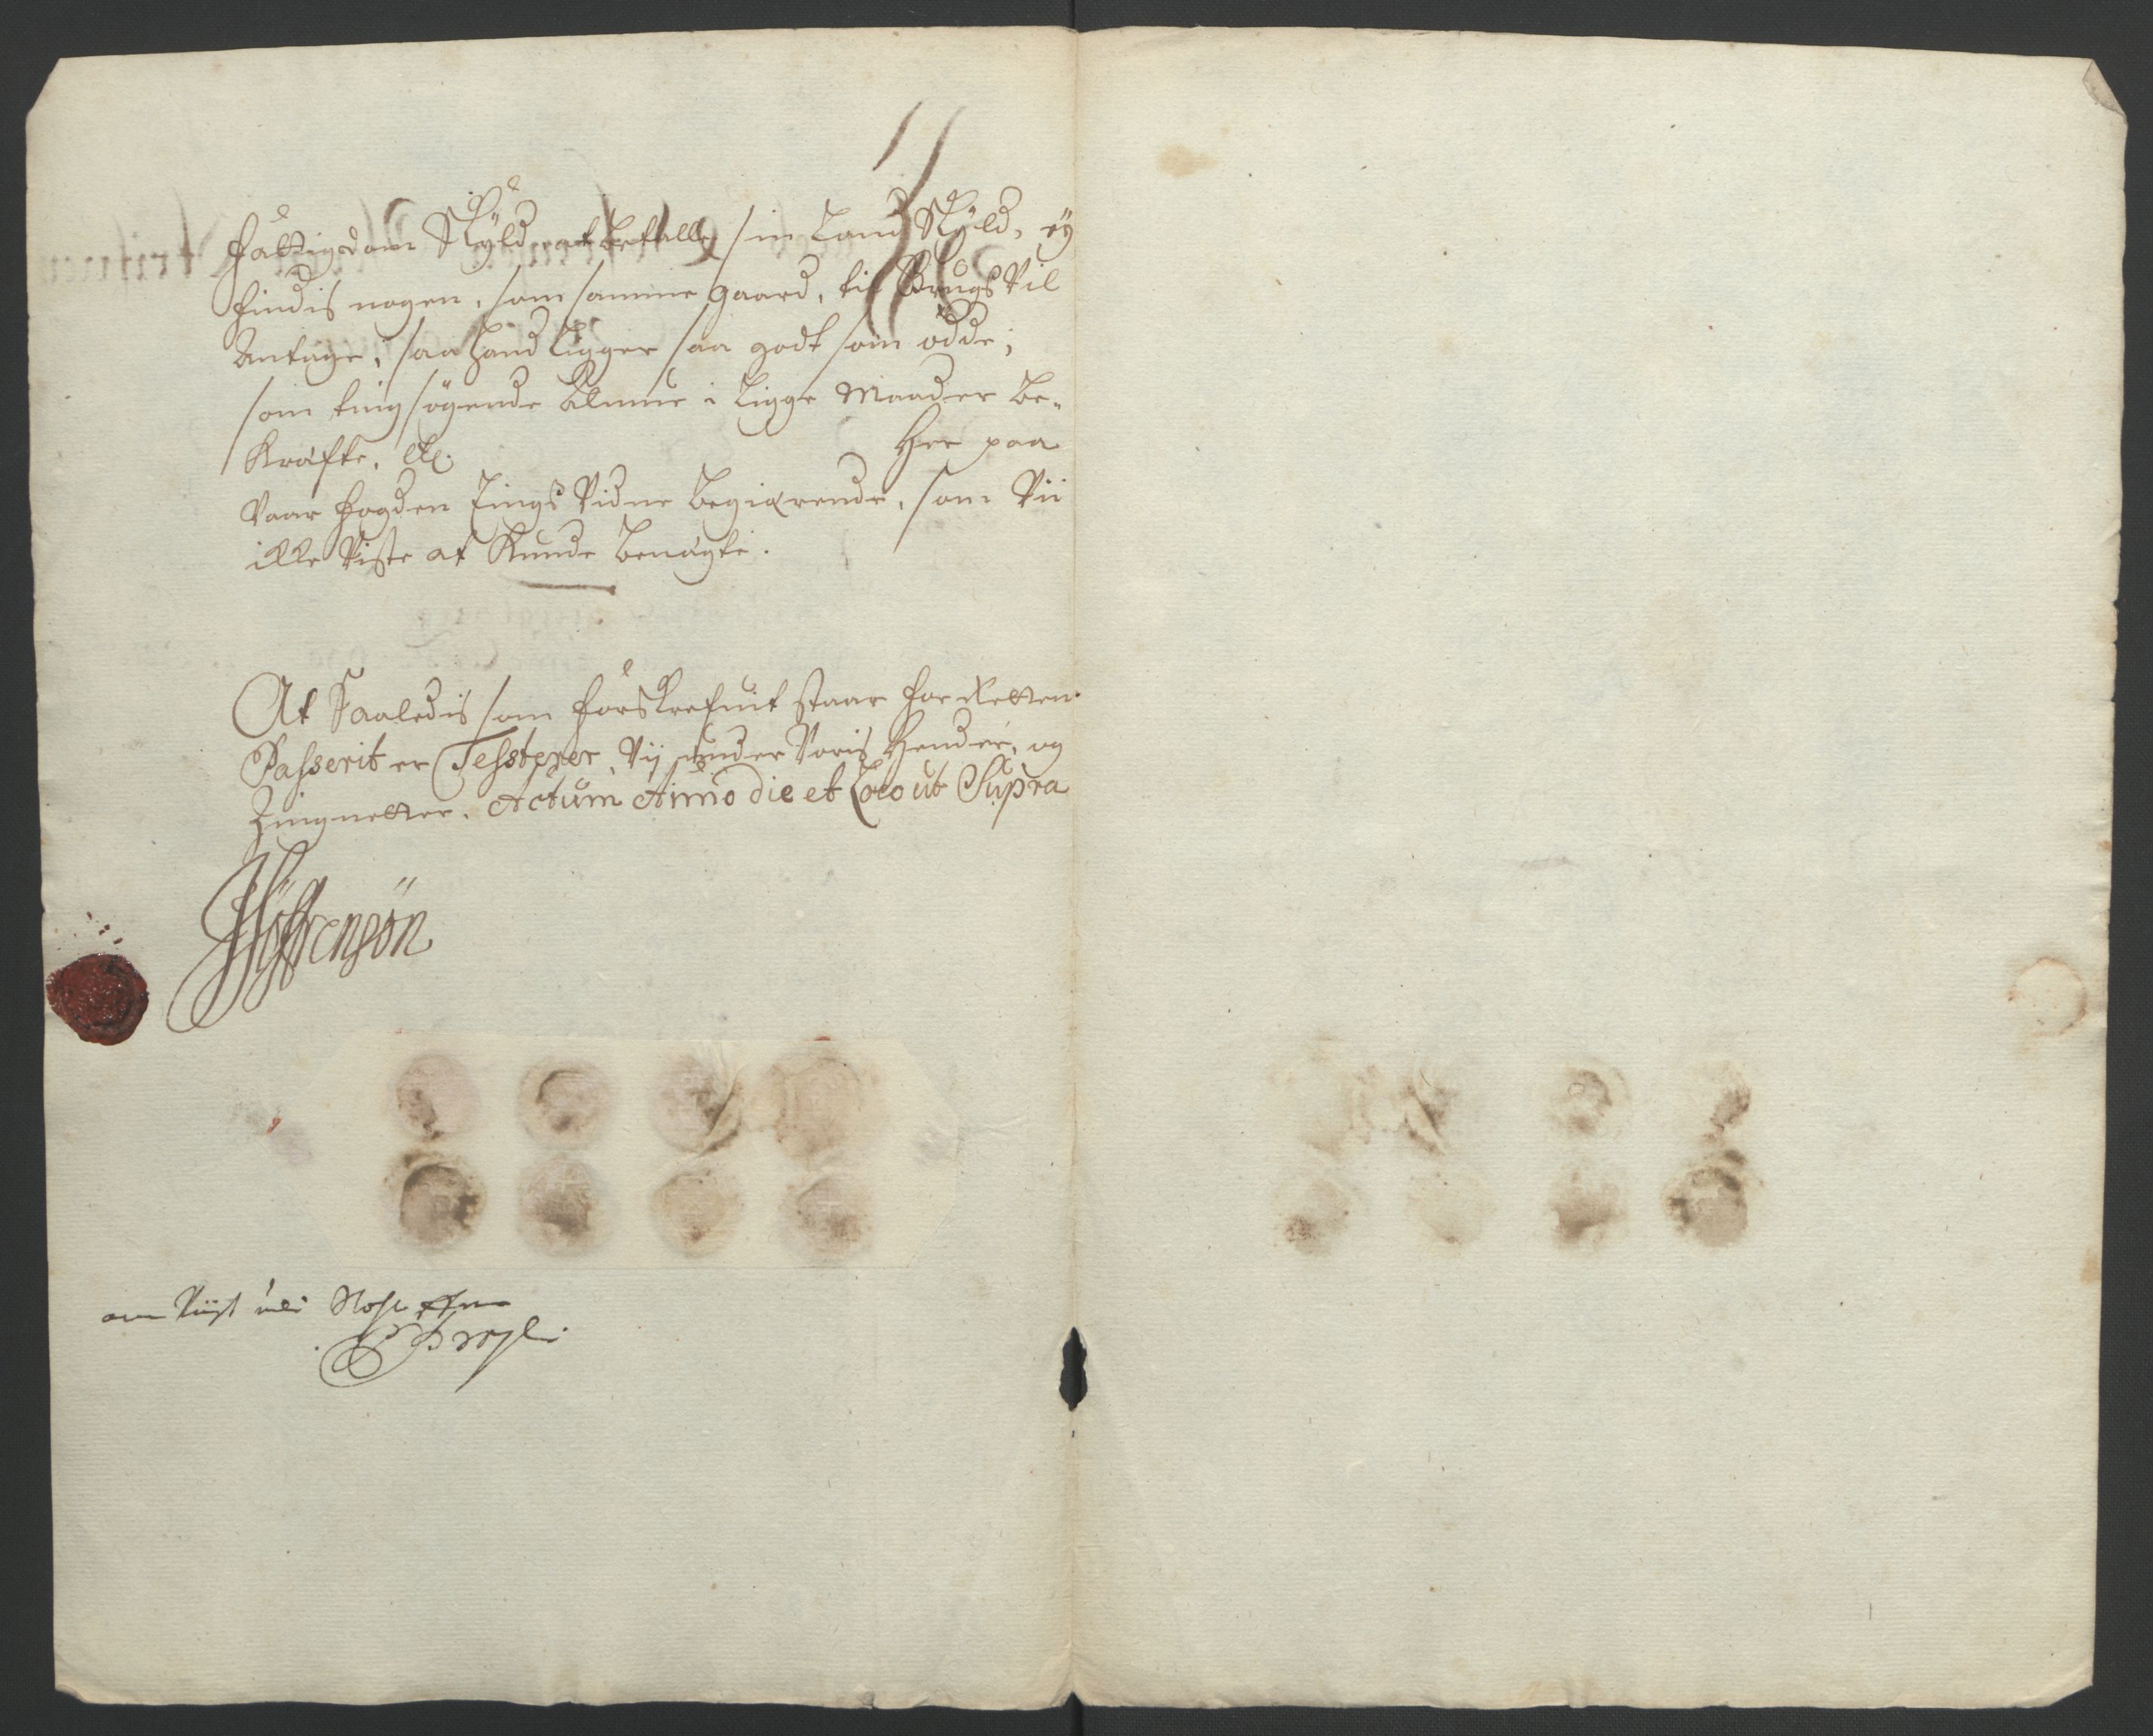 fattigdom Skÿld at betalle sin Land Skÿld, eÿ
findis nogen, som samme gaard, til Brugs Vil
Antage, saa hand Ligger saa godt som ödde;
som ting søgende Almue i Ligge Maader be-
Kræfte, etc. Her paa
Vaar fogden Tings Vidne begiærende, som Vii
icke Viste at Kunde benægte.
At Saaledis som forskrefuit staar for Retten
Passerit er Tessterer, Vij under Voris Hender, og
Zingnetter. Actum Anno die et Loco ut Supra